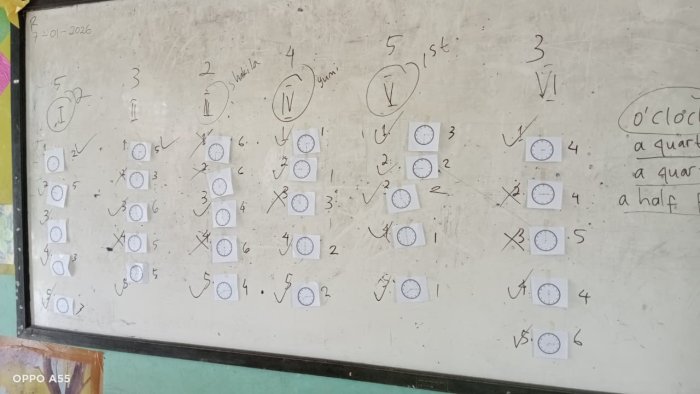 7-01-2026
5 3 2 4 5 3
I 2 II III shakila IV yuni V 1st. VI
1 2 1 5 1 6 1 1 1 3 1 4
2 5 2 3 2 6 2 1 2 2 2 4
3 3 6 3 4 3 3 2 3 5
4 3 4 5 4 6 4 2 4 1 4 4
5 5 5 5 4 5 2 5 1 5 6
o'clock
a quart
a quar
a half
OPPO A55